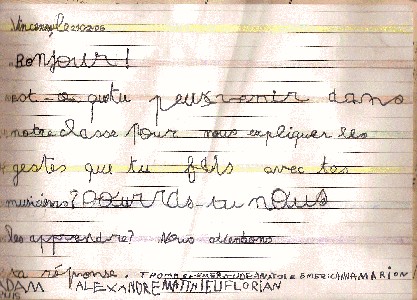 Vincennes, le 21.02.06
Bonjour!
est-ce que tu peux venir dans
notre classe pour nous expliquer les
gestes que tu fais avec tes
musiciens? Pourras-tu nous
les apprendre? Nous attendons
ta réponse. THOMAS CLEMENT JUDE ANATOLE EMERIC ANNA MARION
ADAM ALEXANDRE MATTHIEU FLORIAN